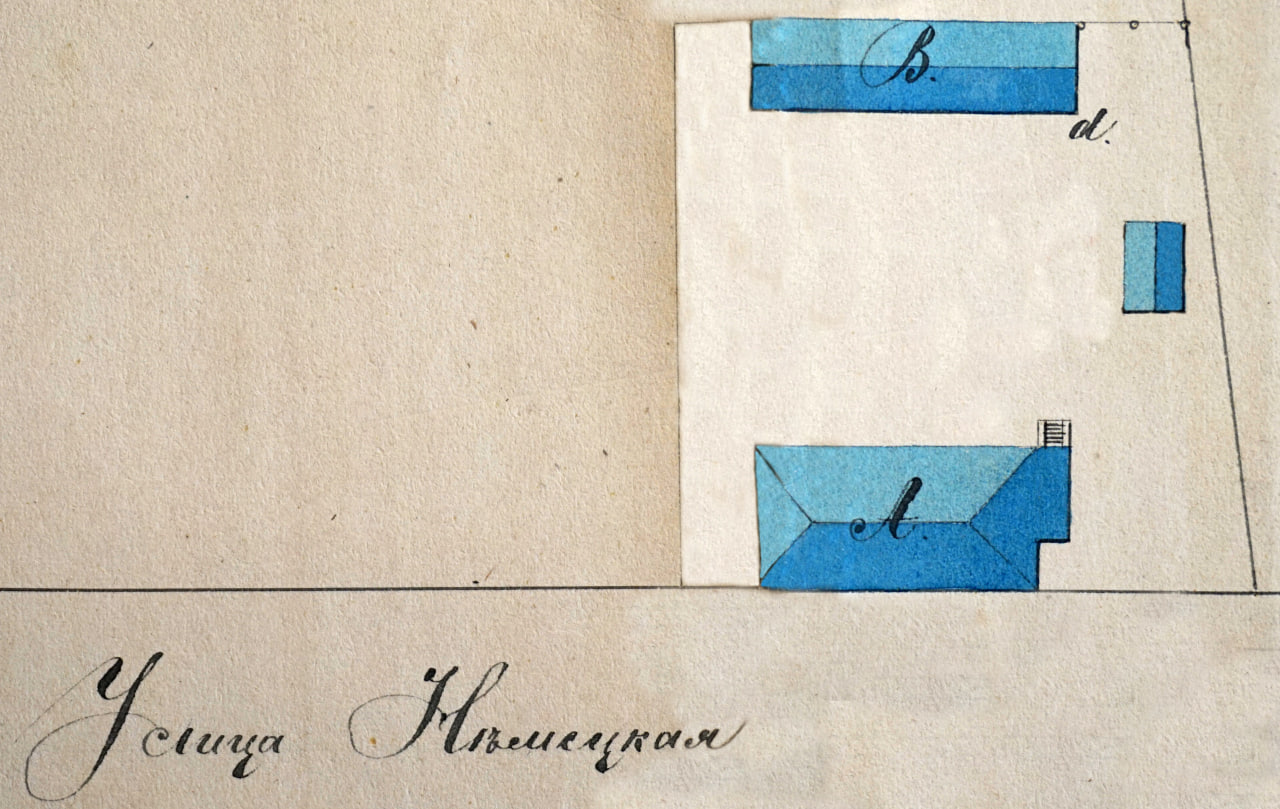 B.
d.
A.
Улица Нѣмецкая